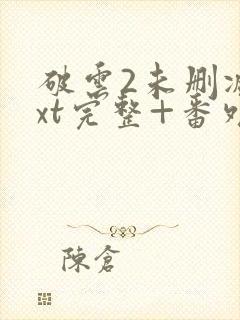 破雲2未删减
xt完整+番外
陳倉